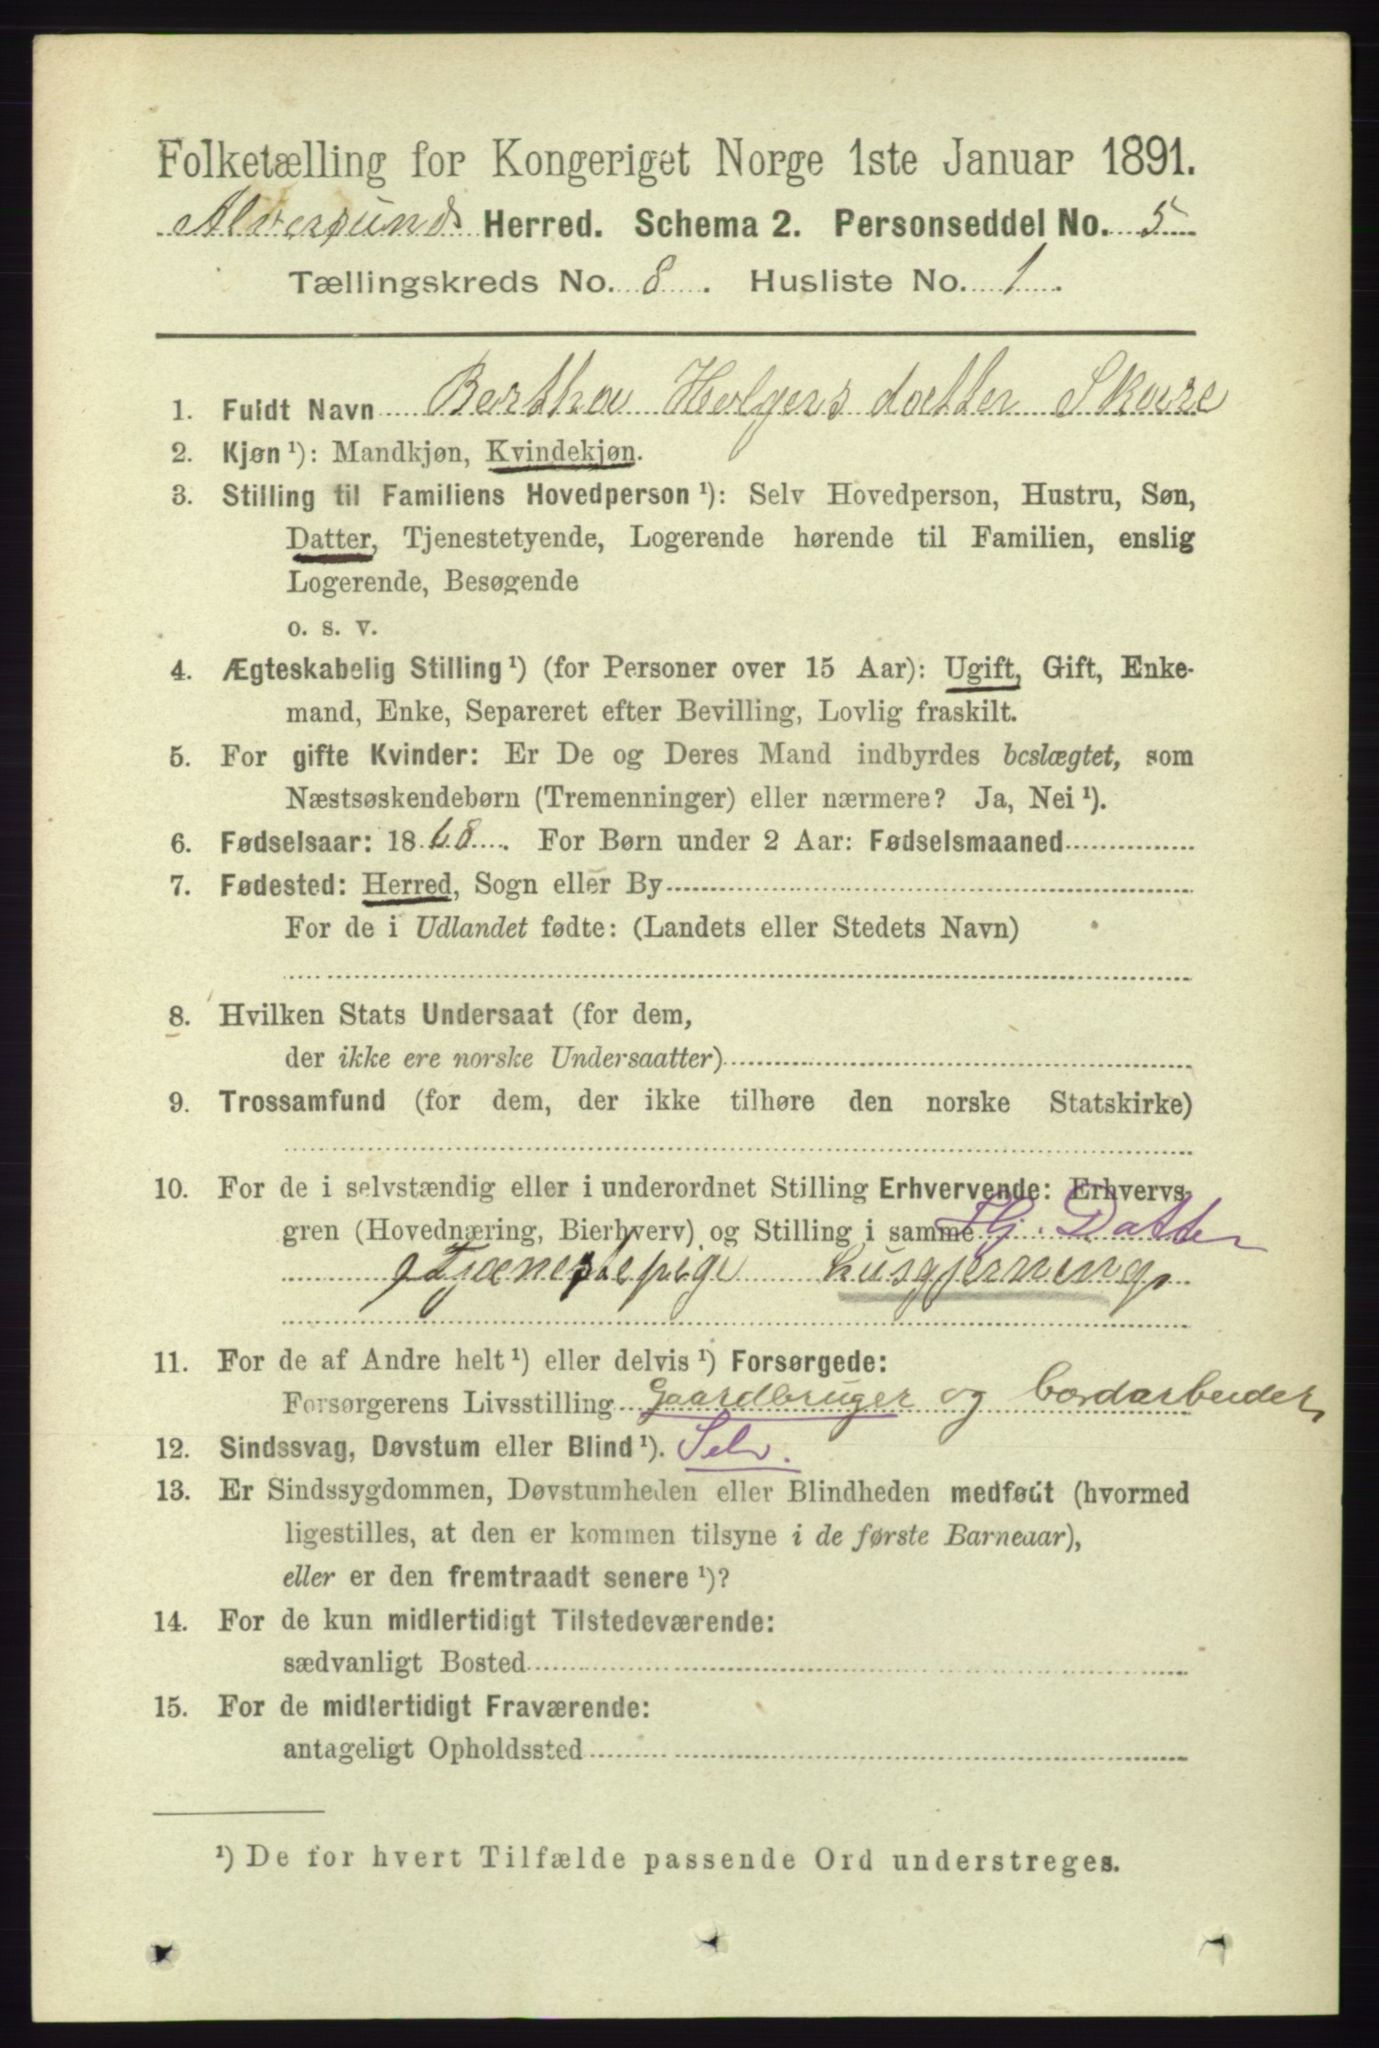 Folketælling for Kongeriget Norge 1ste Januar 1891.
Alversunds Herred. Schema 2. Personseddel No. 5
Tællingskreds No. 8. Husliste No. 1.
1. Fuldt Navn Bertha Holgersdatter Skare
2. Kjøn ¹): Mandkjøn, Kvindekjøn.
3. Stilling til Familiens Hovedperson ¹): Selv Hovedperson, Hustru, Søn,
Datter, Tjenestetyende, Logerende hørende til Familien, enslig
Logerende, Besøgende
o. s. v.
4. Ægteskabelig Stilling ¹) (for Personer over 15 Aar): Ugift, Gift, Enke-
mand, Enke, Separeret efter Bevilling, Lovlig fraskilt.
5. For gifte Kvinder: Er De og Deres Mand indbyrdes beslægtet, som
Næstsøskendebørn (Tremenninger) eller nærmere? Ja, Nei ¹).
6. Fødselsaar: 1868. For Børn under 2 Aar: Fødselsmaaned
7. Fødested: Herred, Sogn eller By
For de i Udlandet fødte: (Landets eller Stedets Navn)
8. Hvilken Stats Undersaat (for dem,
der ikke ere norske Undersaatter)
9. Trossamfund (for dem, der ikke tilhøre den norske Statskirke)
10. For de i selvstændig eller i underordnet Stilling Erhvervende: Erhvervs-
gren (Hovednæring, Bierhverv) og Stilling i samme Hj. Datter
Tjænestepige husgjerning
11. For de af Andre helt ¹) eller delvis ¹) Forsørgede:
Forsørgerens Livsstilling Gaardbruger og
12. Sindssvag, Døvstum eller Blind ¹). Selv.
13. Er Sindssygdommen, Døvstumheden eller Blindheden medfødt (hvormed
ligestilles, at den er kommen tilsyne i de første Barneaar),
eller er den fremtraadt senere ¹)?
14. For de kun midlertidigt Tilstedeværende:
sædvanligt Bosted
15. For de midlertidigt Fraværende:
antageligt Opholdssted
¹) De for hvert Tilfælde passende Ord understreges.